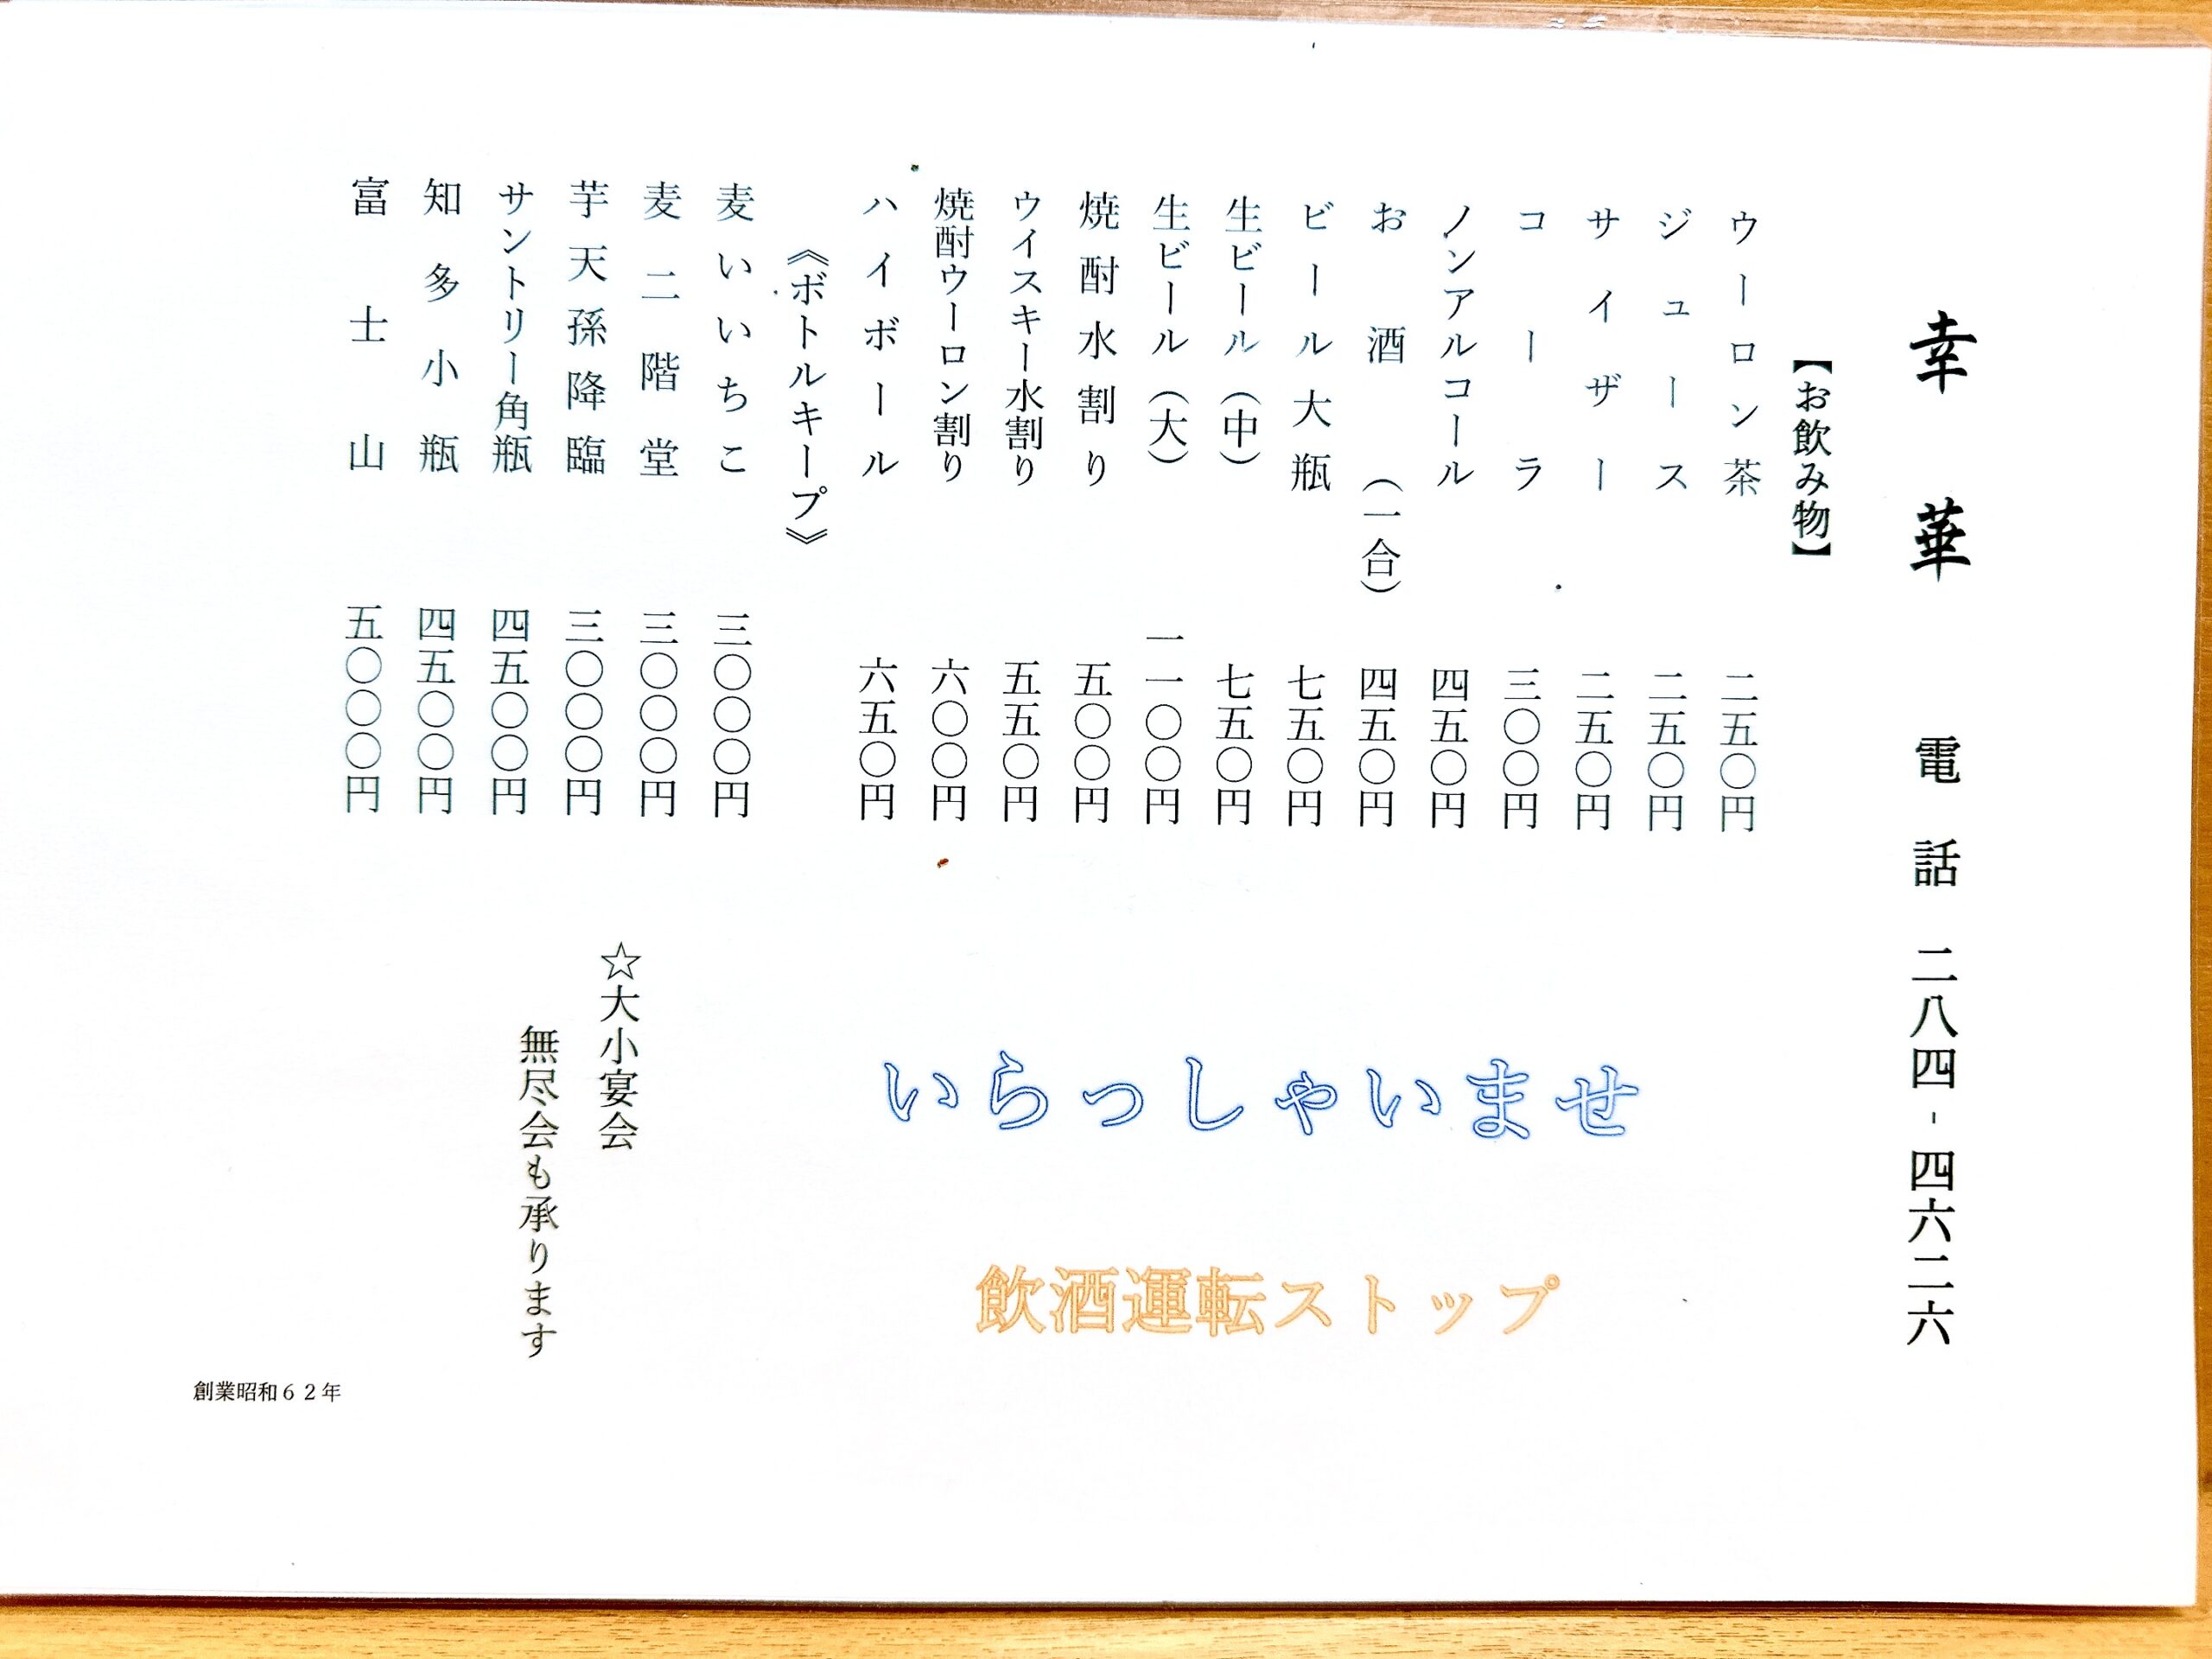 幸華 電話 二八四-四六二六
【お飲み物】
ウーロン茶 二五〇円
ジュース 二五〇円
サイザー 二五〇円
コーラ 三〇〇円
ノンアルコール 四五〇円
お酒（一合） 四五〇円
ビール大瓶 七五〇円
生ビール（中） 七五〇円
生ビール（大） 一一〇〇円
焼酎水割り 五〇〇円
ウイスキー水割り 五五〇円
焼酎ウーロン割り 六〇〇円
ハイボール 六五〇円
《ボトルキープ》
麦いいちこ 三〇〇〇円
麦二階堂 三〇〇〇円
芋天孫降臨 三〇〇〇円
サントリー角瓶 四五〇〇円
知多小瓶 四五〇〇円
富士山 五〇〇〇円
いらっしゃいませ
飲酒運転ストップ
☆大小宴会
無尽会も承ります
創業昭和６２年